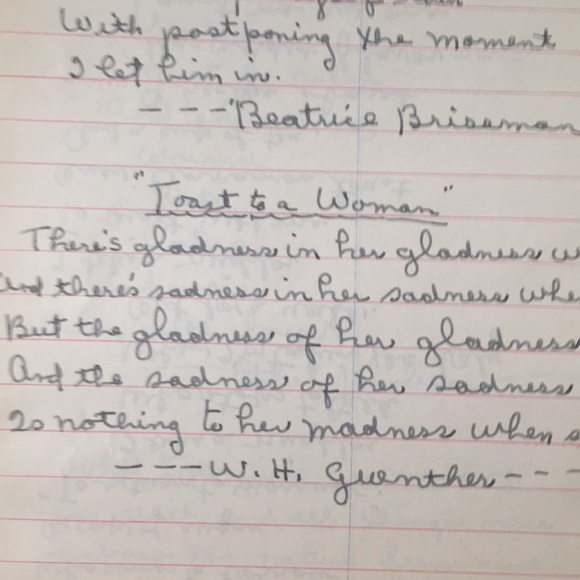 With postponing the moment
I let him in.
— — — Beatrice Briseman
"Toast to a Woman"
There's gladness in her gladness w
And there's sadness in her sadness whe
But the gladness of her gladness
And the sadness of her sadness
Is nothing to her madness when s
— — — W. H. Guenther — — —